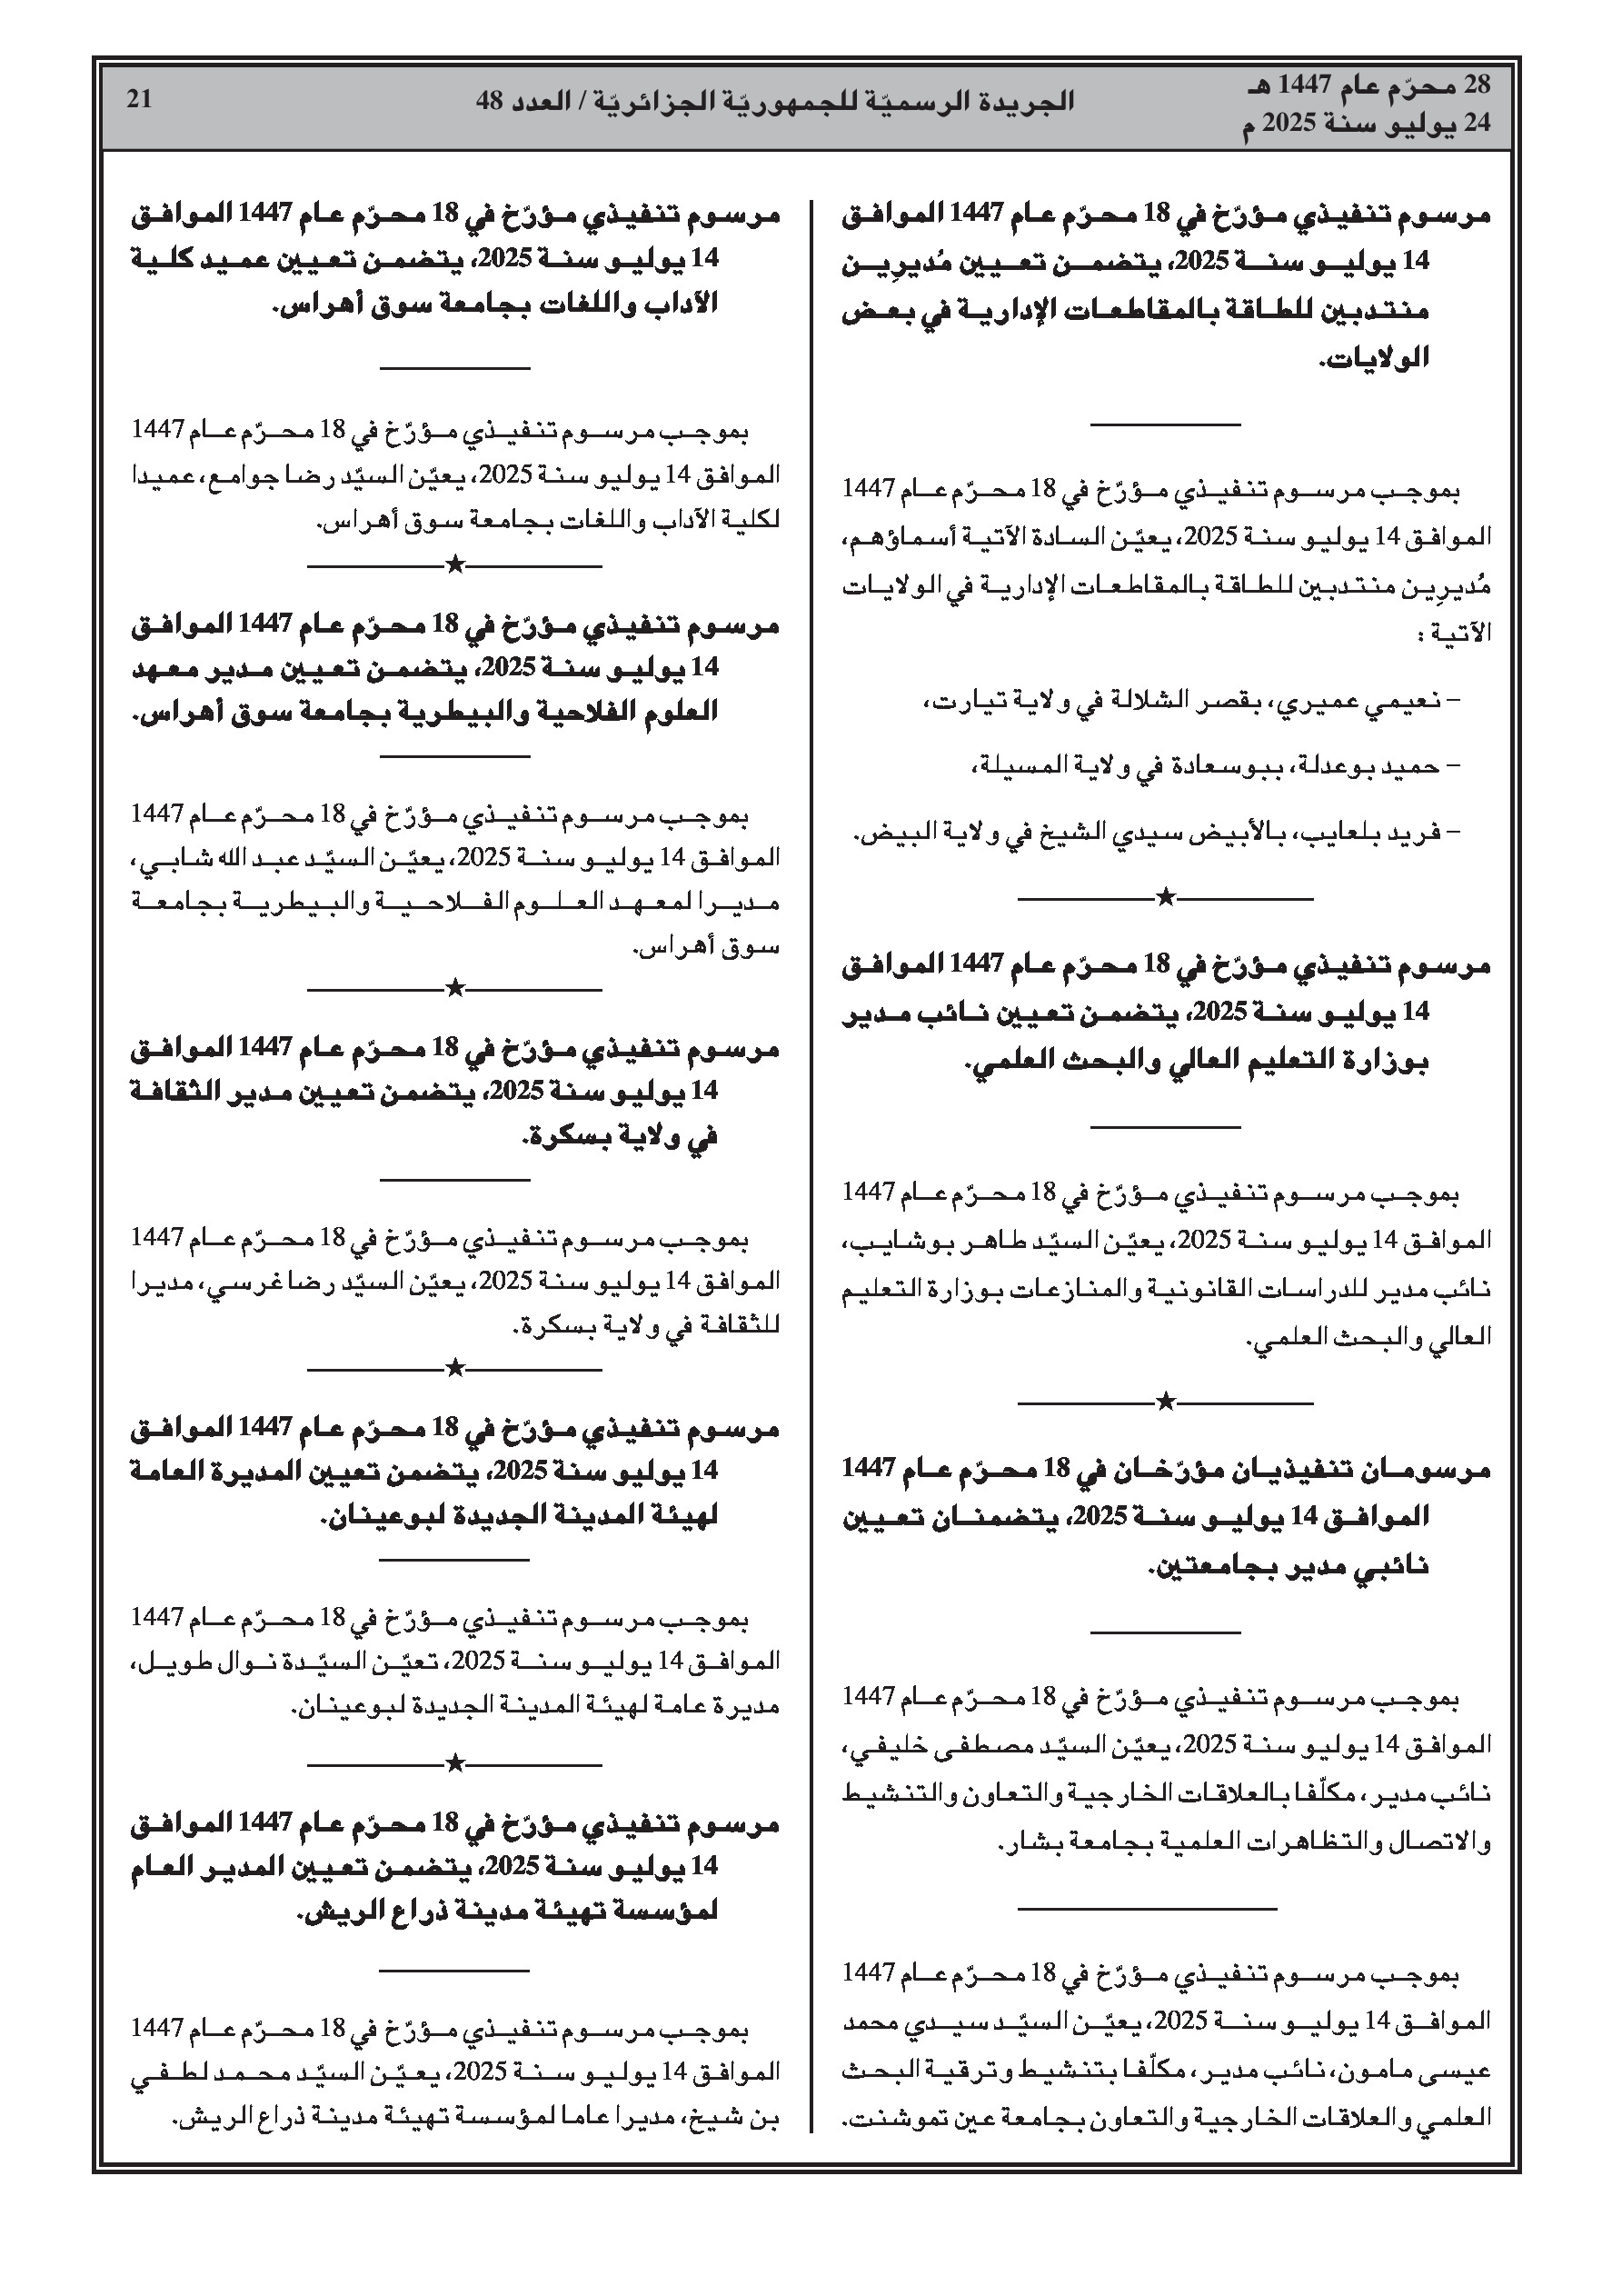 28 محرّم عام 1447 هـ
24 يوليو سنة 2025 م
الجريدة الرسميّة للجمهوريّة الجزائريّة / العدد 48
21
مرسوم تنفيذي مؤرّخ في 18 محرّم عام 1447 الموافق
14 يوليو سنة 2025، يتضمن تعيين مُديرِين
منتدبين للطاقة بالمقاطعات الإدارية في بعض
الولايات.
بموجب مرسوم تنفيذي مؤرّخ في 18 محرّم عام 1447
الموافق 14 يوليو سنة 2025، يعيّن السادة الآتية أسماؤهم،
مُديرِين منتدبين للطاقة بالمقاطعات الإدارية في الولايات
الآتية :
– نعيمي عميري، بقصر الشلالة في ولاية تيارت،
– حميد بوعدلة، ببوسعادة في ولاية المسيلة،
– فريد بلعايب، بالأبيض سيدي الشيخ في ولاية البيض.
مرسوم تنفيذي مؤرّخ في 18 محرّم عام 1447 الموافق
14 يوليو سنة 2025، يتضمن تعيين نائب مدير
بوزارة التعليم العالي والبحث العلمي.
بموجب مرسوم تنفيذي مؤرّخ في 18 محرّم عام 1447
الموافق 14 يوليو سنة 2025، يعيّن السيّد طاهر بوشايب،
نائب مدير للدراسات القانونية والمنازعات بوزارة التعليم
العالي والبحث العلمي.
مرسومان تنفيذيان مؤرّخان في 18 محرّم عام 1447
الموافق 14 يوليو سنة 2025، يتضمنان تعيين
نائبي مدير بجامعتين.
بموجب مرسوم تنفيذي مؤرّخ في 18 محرّم عام 1447
الموافق 14 يوليو سنة 2025، يعيّن السيّد مصطفى خليفي،
نائب مدير، مكلّفا بالعلاقات الخارجية والتعاون والتنشيط
والاتصال والتظاهرات العلمية بجامعة بشار.
بموجب مرسوم تنفيذي مؤرّخ في 18 محرّم عام 1447
الموافق 14 يوليو سنة 2025، يعيّن السيّد سيدي محمد
عيسى مامون، نائب مدير، مكلّفا بتنشيط وترقية البحث
العلمي والعلاقات الخارجية والتعاون بجامعة عين تموشنت.
مرسوم تنفيذي مؤرّخ في 18 محرّم عام 1447 الموافق
14 يوليو سنة 2025، يتضمن تعيين عميد كلية
الآداب واللغات بجامعة سوق أهراس.
بموجب مرسوم تنفيذي مؤرّخ في 18 محرّم عام 1447
الموافق 14 يوليو سنة 2025، يعيّن السيّد رضا جوامع، عميدا
لكلية الآداب واللغات بجامعة سوق أهراس.
مرسوم تنفيذي مؤرّخ في 18 محرّم عام 1447 الموافق
14 يوليو سنة 2025، يتضمن تعيين مدير معهد
العلوم الفلاحية والبيطرية بجامعة سوق أهراس.
بموجب مرسوم تنفيذي مؤرّخ في 18 محرّم عام 1447
الموافق 14 يوليو سنة 2025، يعيّن السيّد عبد الله شابي،
مديرا لمعهد العلوم الفلاحية والبيطرية بجامعة
سوق أهراس.
مرسوم تنفيذي مؤرّخ في 18 محرّم عام 1447 الموافق
14 يوليو سنة 2025، يتضمن تعيين مدير الثقافة
في ولاية بسكرة.
بموجب مرسوم تنفيذي مؤرّخ في 18 محرّم عام 1447
الموافق 14 يوليو سنة 2025، يعيّن السيّد رضا غرسي، مديرا
للثقافة في ولاية بسكرة.
مرسوم تنفيذي مؤرّخ في 18 محرّم عام 1447 الموافق
14 يوليو سنة 2025، يتضمن تعيين المديرة العامة
لهيئة المدينة الجديدة لبوعينان.
بموجب مرسوم تنفيذي مؤرّخ في 18 محرّم عام 1447
الموافق 14 يوليو سنة 2025، تعيّن السيّدة نوال طويل،
مديرة عامة لهيئة المدينة الجديدة لبوعينان.
مرسوم تنفيذي مؤرّخ في 18 محرّم عام 1447 الموافق
14 يوليو سنة 2025، يتضمن تعيين المدير العام
لمؤسسة تهيئة مدينة ذراع الريش.
بموجب مرسوم تنفيذي مؤرّخ في 18 محرّم عام 1447
الموافق 14 يوليو سنة 2025، يعيّن السيّد محمد لطفي
بن شيخ، مديرا عاما لمؤسسة تهيئة مدينة ذراع الريش.